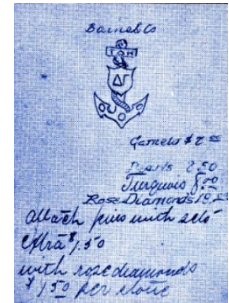 Barnetts
ΔΓ
Garnets $7.00
Pearls 7.50
Turquois 8.00
Rose Diamonds 18.00
Attach pins with sets
extra $1.50
with rose diamonds
$1.50 per stone